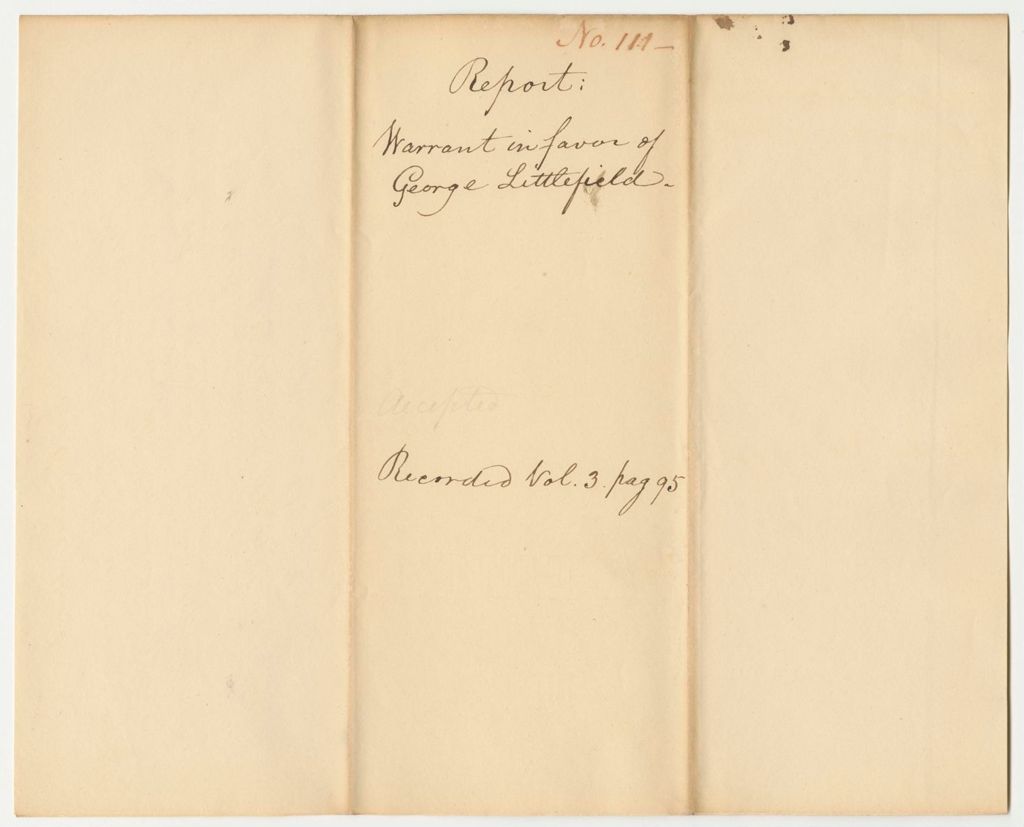 No. 111-
Report:
Warrant in favor of
George Littlefield-
Accepted
Recorded Vol. 3. pag 95